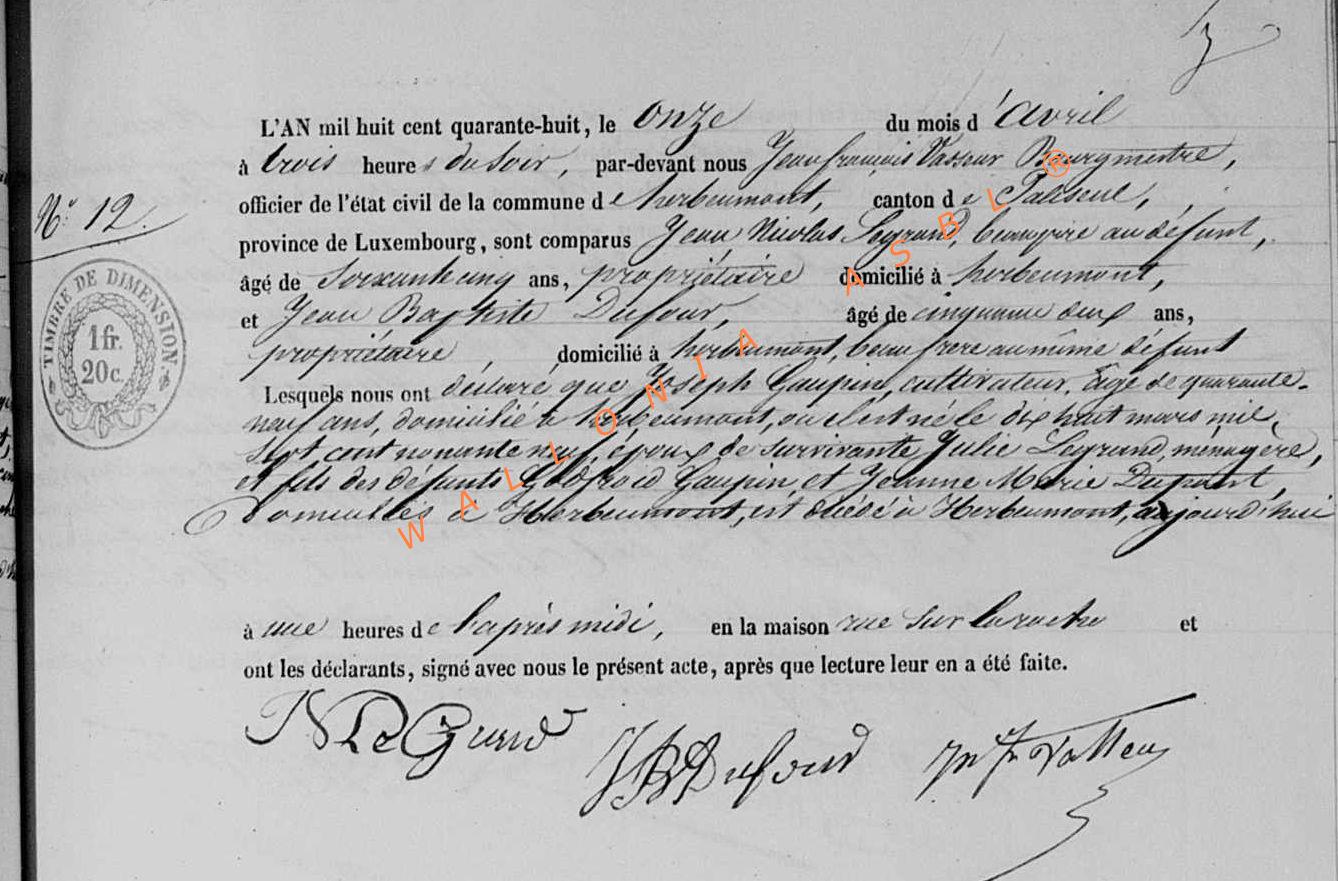 L'AN mil huit cent quarante-huit, le onze du mois d'avril
à trois heures du soir, par-devant nous Jean françois Bourgmestre,
officier de l'état civil de la commune de herbeumont, canton de Paliseul,
N° 12.
province de Luxembourg, sont comparus Jean Nicolas Legrand, beau père au défunt,
âgé de soixante cinq ans, propriétaire domicilié à herbeumont,
et Jean Baptiste Dufour, âgé de cinquante deux ans,
propriétaire, domicilié à herbeumont, beau frere au même défunt
Lesquels nous ont déclaré que Joseph Gaupin, cultivateur, âgé de quarante-
neuf ans, domicilié à herbeumont, où il est né le dix huit mars mil
sept cent nonante neuf, époux de survivante Julie Legrand, ménagère,
et fils des défunts Godfroid Gaupin et Jeanne Marie Dupont,
Domiciliés à Herbeumont, est décédé à Herbeumont, aujourd'hui
à une heures de l'après midi, en la maison rue sur la roche et
ont les déclarants, signé avec nous le présent acte, après que lecture leur en a été faite.
JN LeGrand
JB Dufour
TIMBRE DE DIMENSION.
1 fr.
20 c.
WALLONIA ASBL ®